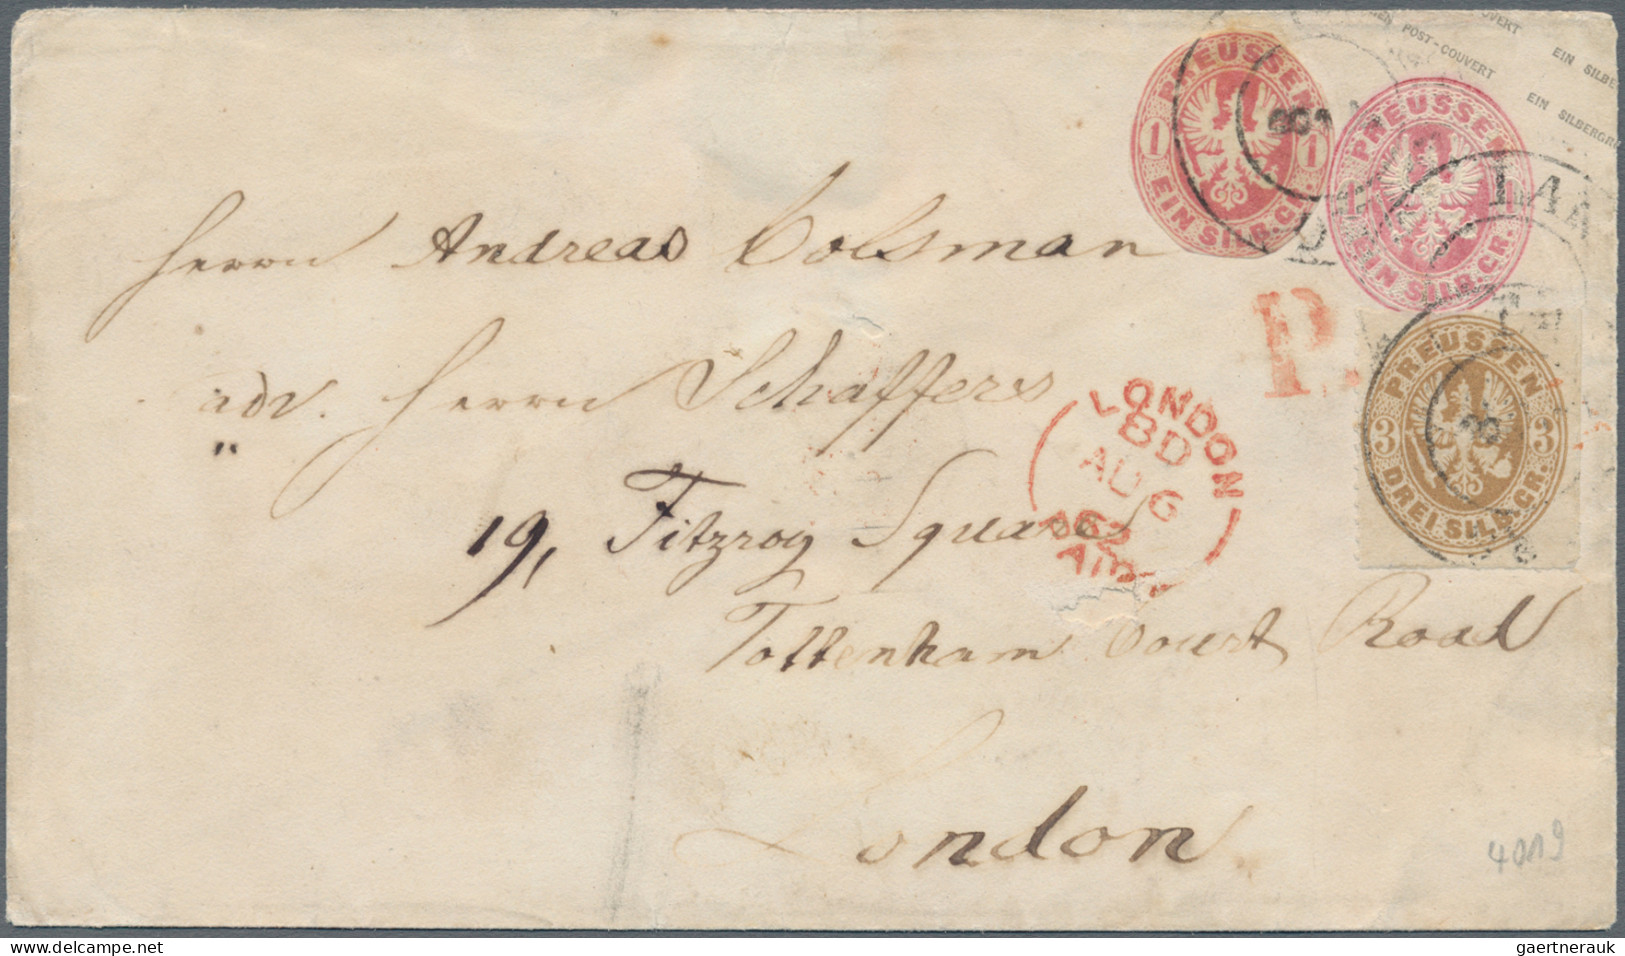 POST-COUVERT
EIN SILBE
EIN SILBERGR
PREUSSEN
1 1
EIN SILB. GR.
PREUSSEN
1 1
EIN SILB. GR.
LAA
Herrn Andreas Colsman
P.
PREUSSEN
3 3
DREI SILB. GR.
adr. Herrn Schäffers
"
LONDON
BD
AU 6
63
19, Fitzroy Square
Tottenham Court Road
London
4019
www.delcampe.net
gaertnerauk